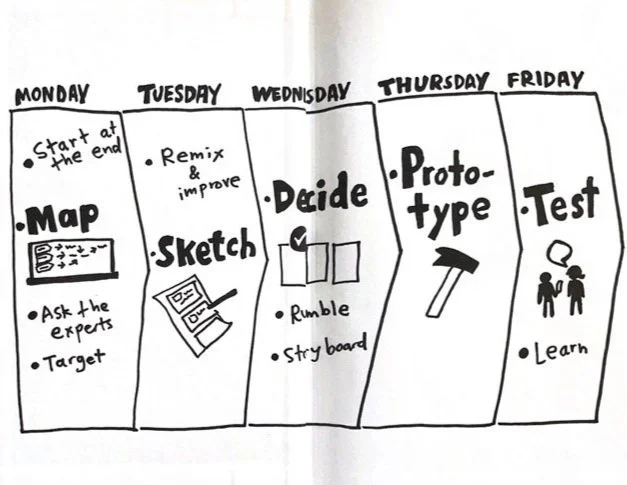 MONDAY
• Start at
the end
• Map
• Ask the
experts
• Target
TUESDAY
• Remix
&
improve
• Sketch
WEDNISDAY
• Decide
• Rumble
• Stryboard
THURSDAY
• Proto-
type
FRIDAY
• Test
• Learn